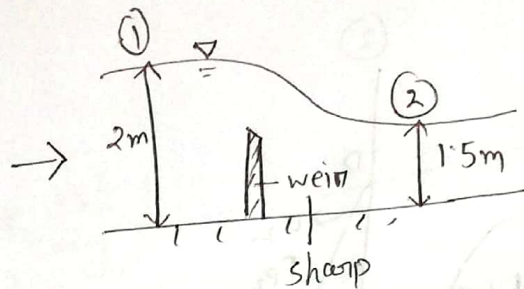 ①
②
2m
1.5m
wein
sharp